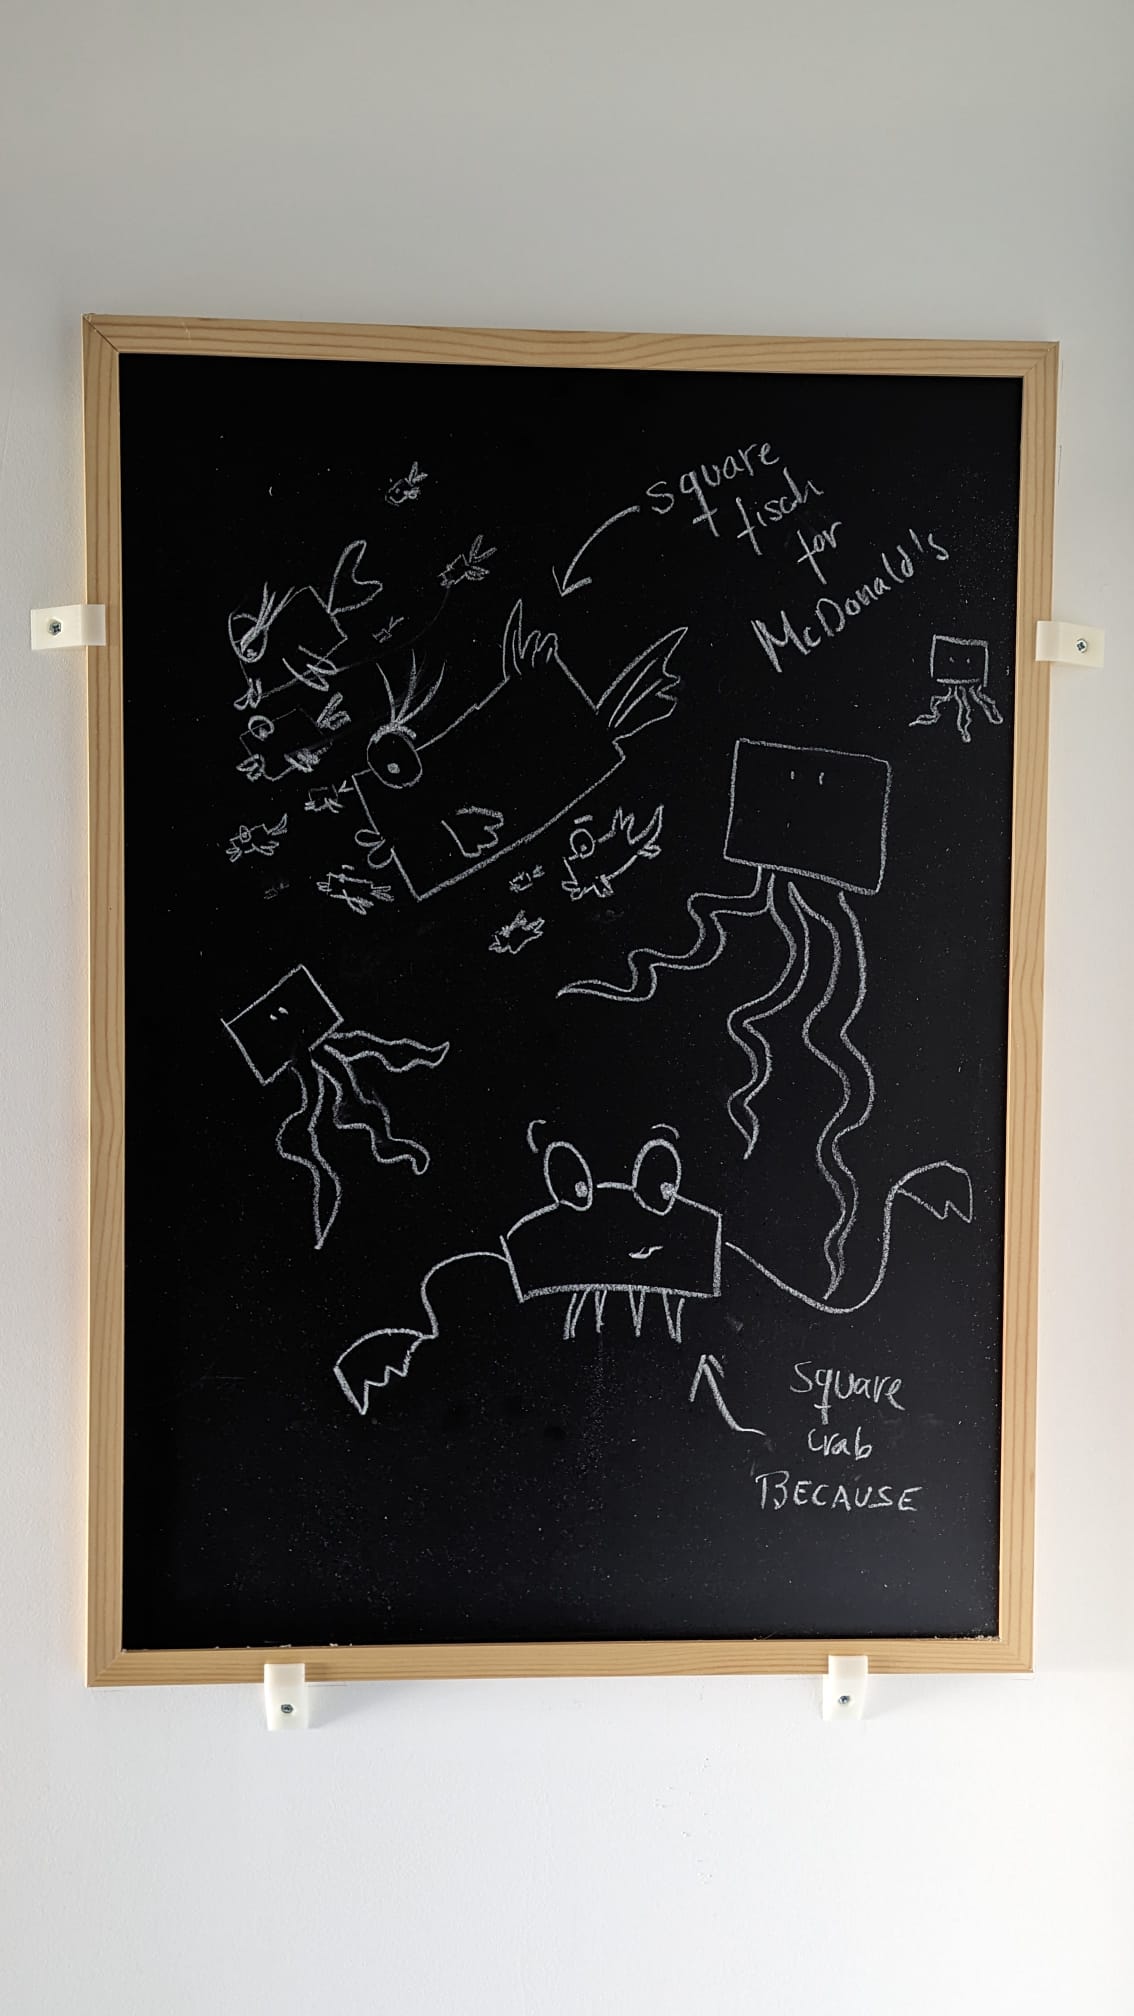 square
fisch
for
McDonald's
square
crab
BECAUSE